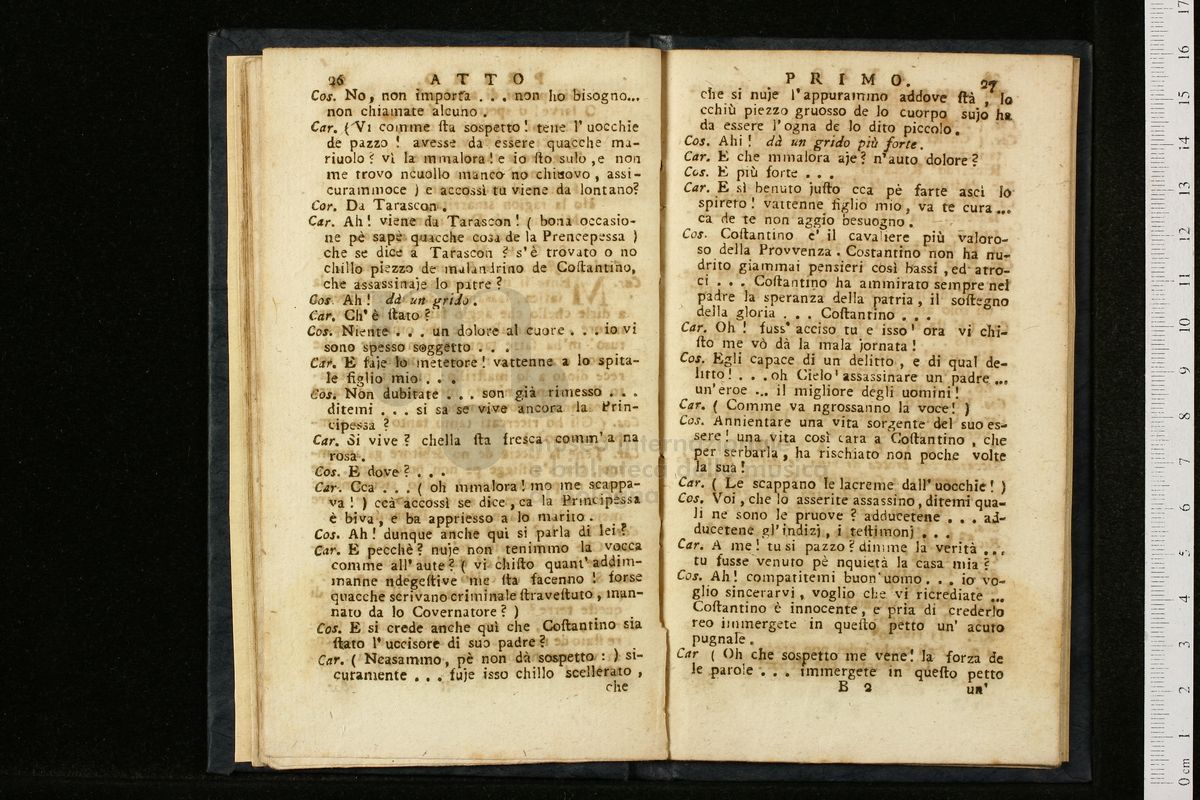 26 ATTO
Cos. No, non importa . . . non ho bisogno...
non chiamate alcuno .
Car. (Vi comme ſta sospetto! tene l' uocchie
de pazzo ! avesse da essere quacche ma-
riuolo ? vì la mmalora! e io ſto sulo, e non
me trovo ncuollo manco no chiovo, assi-
curammoce ) e accossì tu viene da lontano?
Cos. Da Tarascon .
Car. Ah! viene da Tarascon! ( bona occasio-
ne pè sapè quacche cosa de la Prencepessa )
che se dice a Tarascon ? s'è trovato o no
chillo piezzo de malandrino de Coſtantino,
che assassinaje lo patre ?
Cos. Ah! dà un grido .
Car. Ch' è ſtato ?
Cos. Niente . . . un dolore al cuore . . . io vi
sono spesso soggetto . . .
Car. E faje lo metetore! vattenne a lo spita-
le figlio mio . . .
Cos. Non dubitate . . . son già rimesso . . .
ditemi . . . si sa se vive ancora la Prin-
cipessa ?
Car. Si vive ? chella ſta fresca comm' a na
rosa .
Cos. E dove ? . . .
Car. Cca . . . ( oh mmalora! mo me scappa-
va ! ) cca accossì se dice, ca la Principessa
è biva, e ba appriesso a lo marito .
Cos. Ah! dunque anche qui si parla di lei ?
Car. E pecchè ? nuje non tenimmo la vocca
comme all' aute ? ( vi chiſto quant' addim-
manne ndegeſtive me ſta facenno ! forse
quacche scrivano criminale ſtraveſtuto, man-
nato da lo Covernatore ? )
Cos. E si crede anche quì che Coſtantino sia
ſtato l' uccisore di suo padre ?
Car. ( Neasammo, pè non dà sospetto : ) si-
curamente . . . fuje isso chillo scellerato ,
che
PRIMO. 27
che si nuje l' appurammo addove ſtà , lo
cchiù piezzo gruosso de lo cuorpo sujo ha
da essere l' ogna de lo dito piccolo .
Cos. Ahi ! dà un grido più forte .
Car. E che mmalora aje ? n' auto dolore ?
Cos. E più forte . . .
Car. E sì benuto juſto cca pè farte ascì lo
spireto! vattenne figlio mio, va te cura ...
ca de te non aggio besuogno .
Cos. Coſtantino e' il cavaliere più valoro-
so della Provvenza . Costantino non ha nu-
drito giammai pensieri così bassi , ed atro-
ci . . . Coſtantino ha ammirato sempre nel
padre la speranza della patria , il soſtegno
della gloria . . . Coſtantino . . .
Car. Oh ! fuss' acciso tu e isso ' ora vi chi-
ſto me vò dà la mala jornata !
Cos. Egli capace di un delitto , e di qual de-
litto! . . . oh Cielo ' assassinare un padre ...
un' eroe ... il migliore degli uomini !
Car. ( Comme va ngrossanno la voce! )
Cos. Annientare una vita sorgente del suo es-
sere! una vita così cara a Coſtantino , che
per serbarla , ha rischiato non poche volte
la sua !
Car. ( Le scappano le lacreme dall' uocchie! )
Cos. Voi, che lo asserite assassino, ditemi qua-
li ne sono le pruove ? adducetene . . . ad-
ducetene gl' indizj , i teſtimonj . . .
Car. A me! tu si pazzo ? dimme la verità ...
tu fusse venuto pè nquietà la casa mia ?
Cos. Ah! compatitemi buon' uomo . . . io vo-
glio sincerarvi , voglio che vi ricrediate ...
Coſtantino è innocente, e pria di crederlo
reo immergete in queſto petto un' acuto
pugnale .
Car ( Oh che sospetto me vene! la forza de
le parole . . . immergete in queſto petto
B 2 un'
museo internazionale
e biblioteca della musica